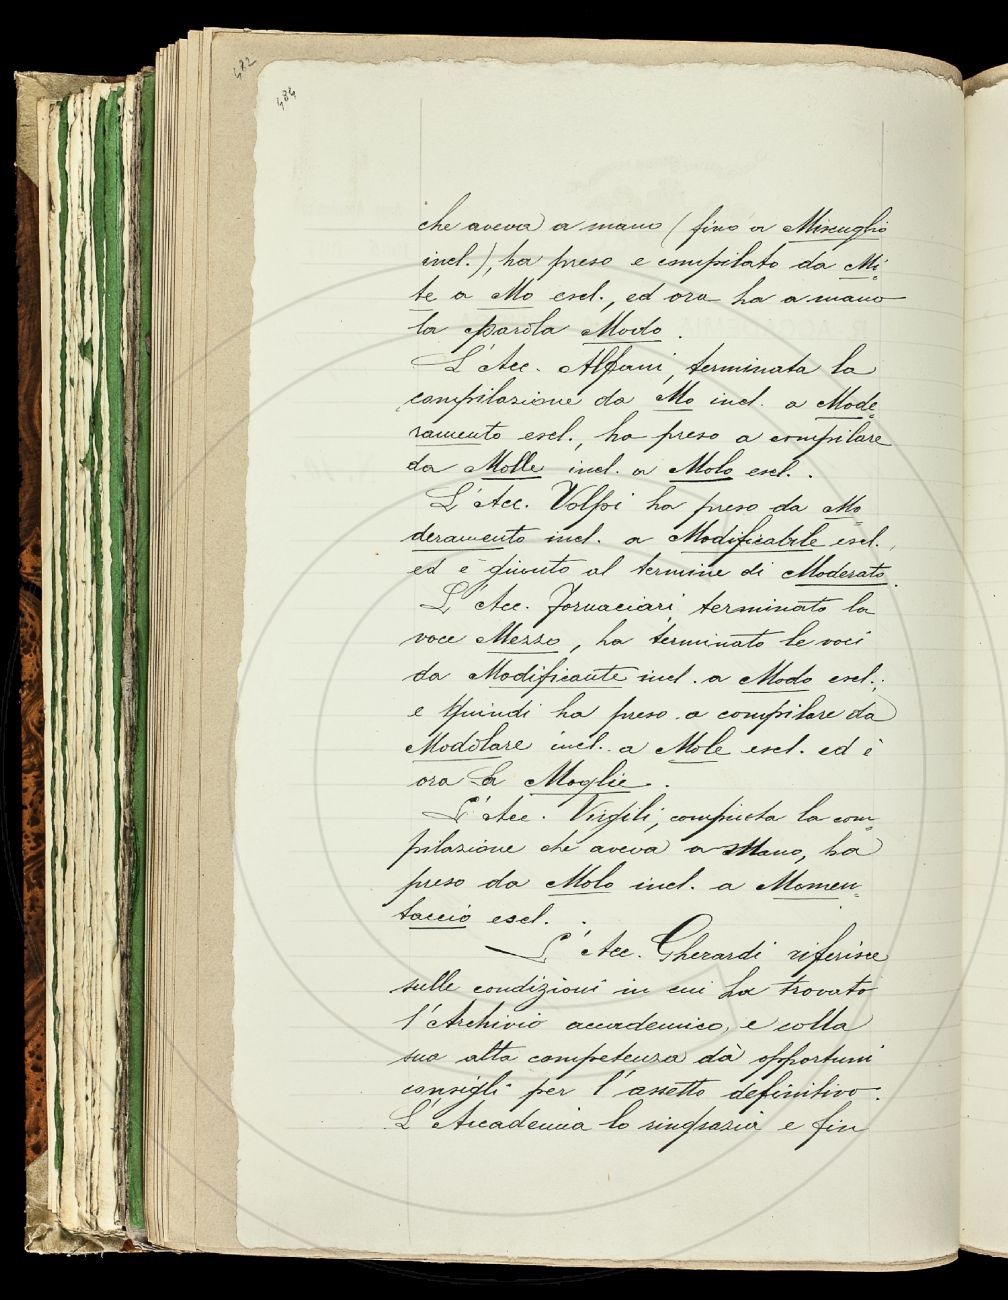 482
484
che aveva a mano (fino a Miscuglio
incl.), ha preso e compilato da Mi=
te a Mo escl., ed ora ha a mano
la parola Modo.
L'Acc. Alfani, terminata la
compilazione da Mo incl. a Mode=
ramento escl., ha preso a compilare
da Molle incl. a Molo escl.
L'Acc. Volpi ha preso da Mo
deramento incl. a Modificabile escl.,
ed è giunto al termine di Moderato.
L'Acc. Fornaciari, terminato la
voce Mezzo, ha terminato le voci
da Modificante incl. a Modo escl.;
e quindi ha preso a compilare da
Modolare incl. a Mole escl. ed è
ora a Moglie.
L'Acc. Virgili, compiuta la com=
pilazione che aveva a mano, ha
preso da Molo incl. a Momen=
taccio escl.
L'Acc. Gherardi riferisce
sulle condizioni in cui ha trovato
l'Archivio accademico, e colla
sua alta competenza dà opportuni
consigli per l'assetto definitivo.
L'Accademia lo ringrazia e fin